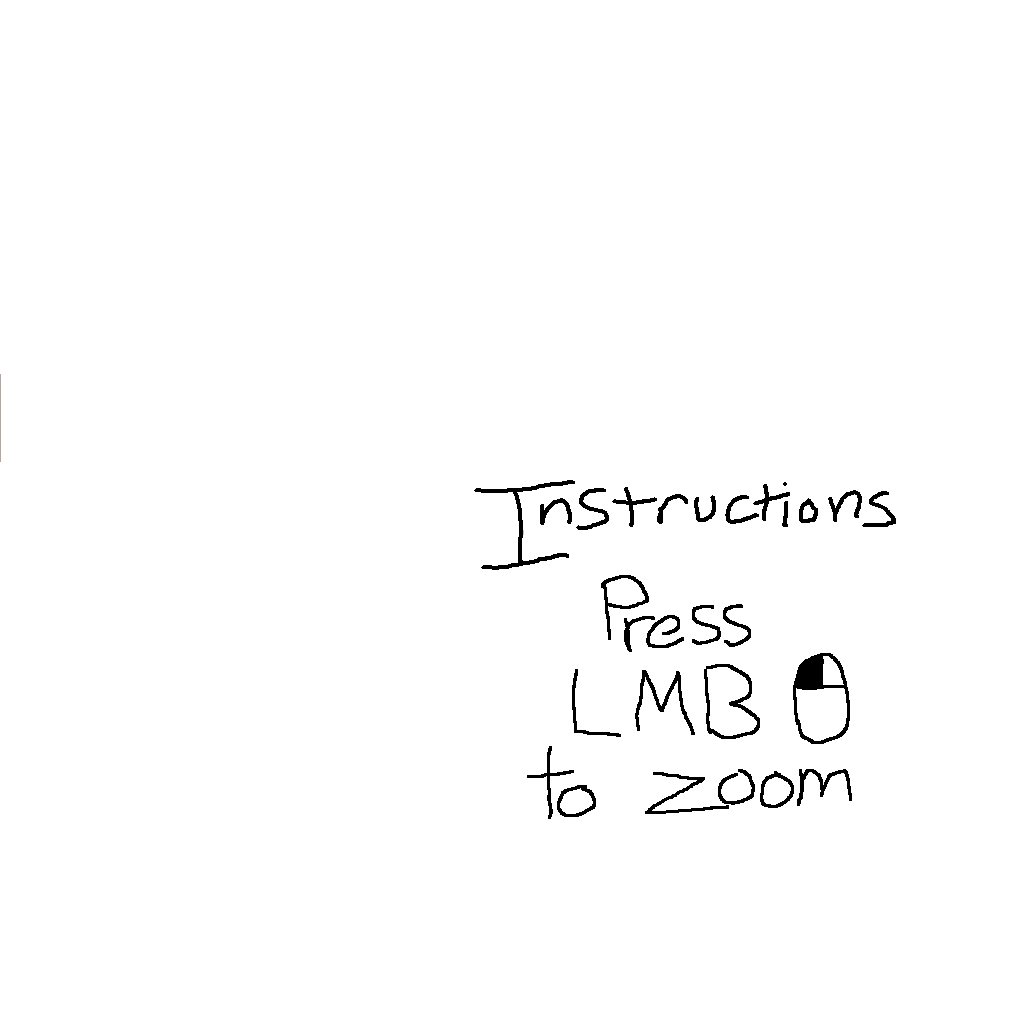 Instructions
Press
LMB
to zoom